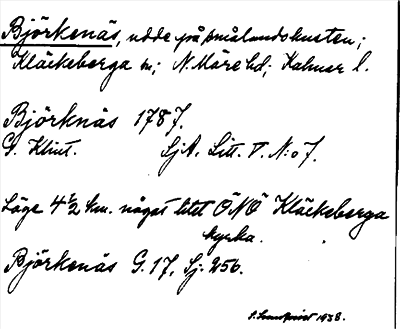 Björkenäs, udde på smålandskusten;
Kläckeberga sn; N. Möre hd; Kalmar l.
Björknäs 1787.
G. Klint. SjA. Litt. V. N:o 7.
Läge 4 1/2 km. något litet ÖNÖ Kläckeberga
kyrka.
Björkenäs G. 17, Sj. 256.
1938.